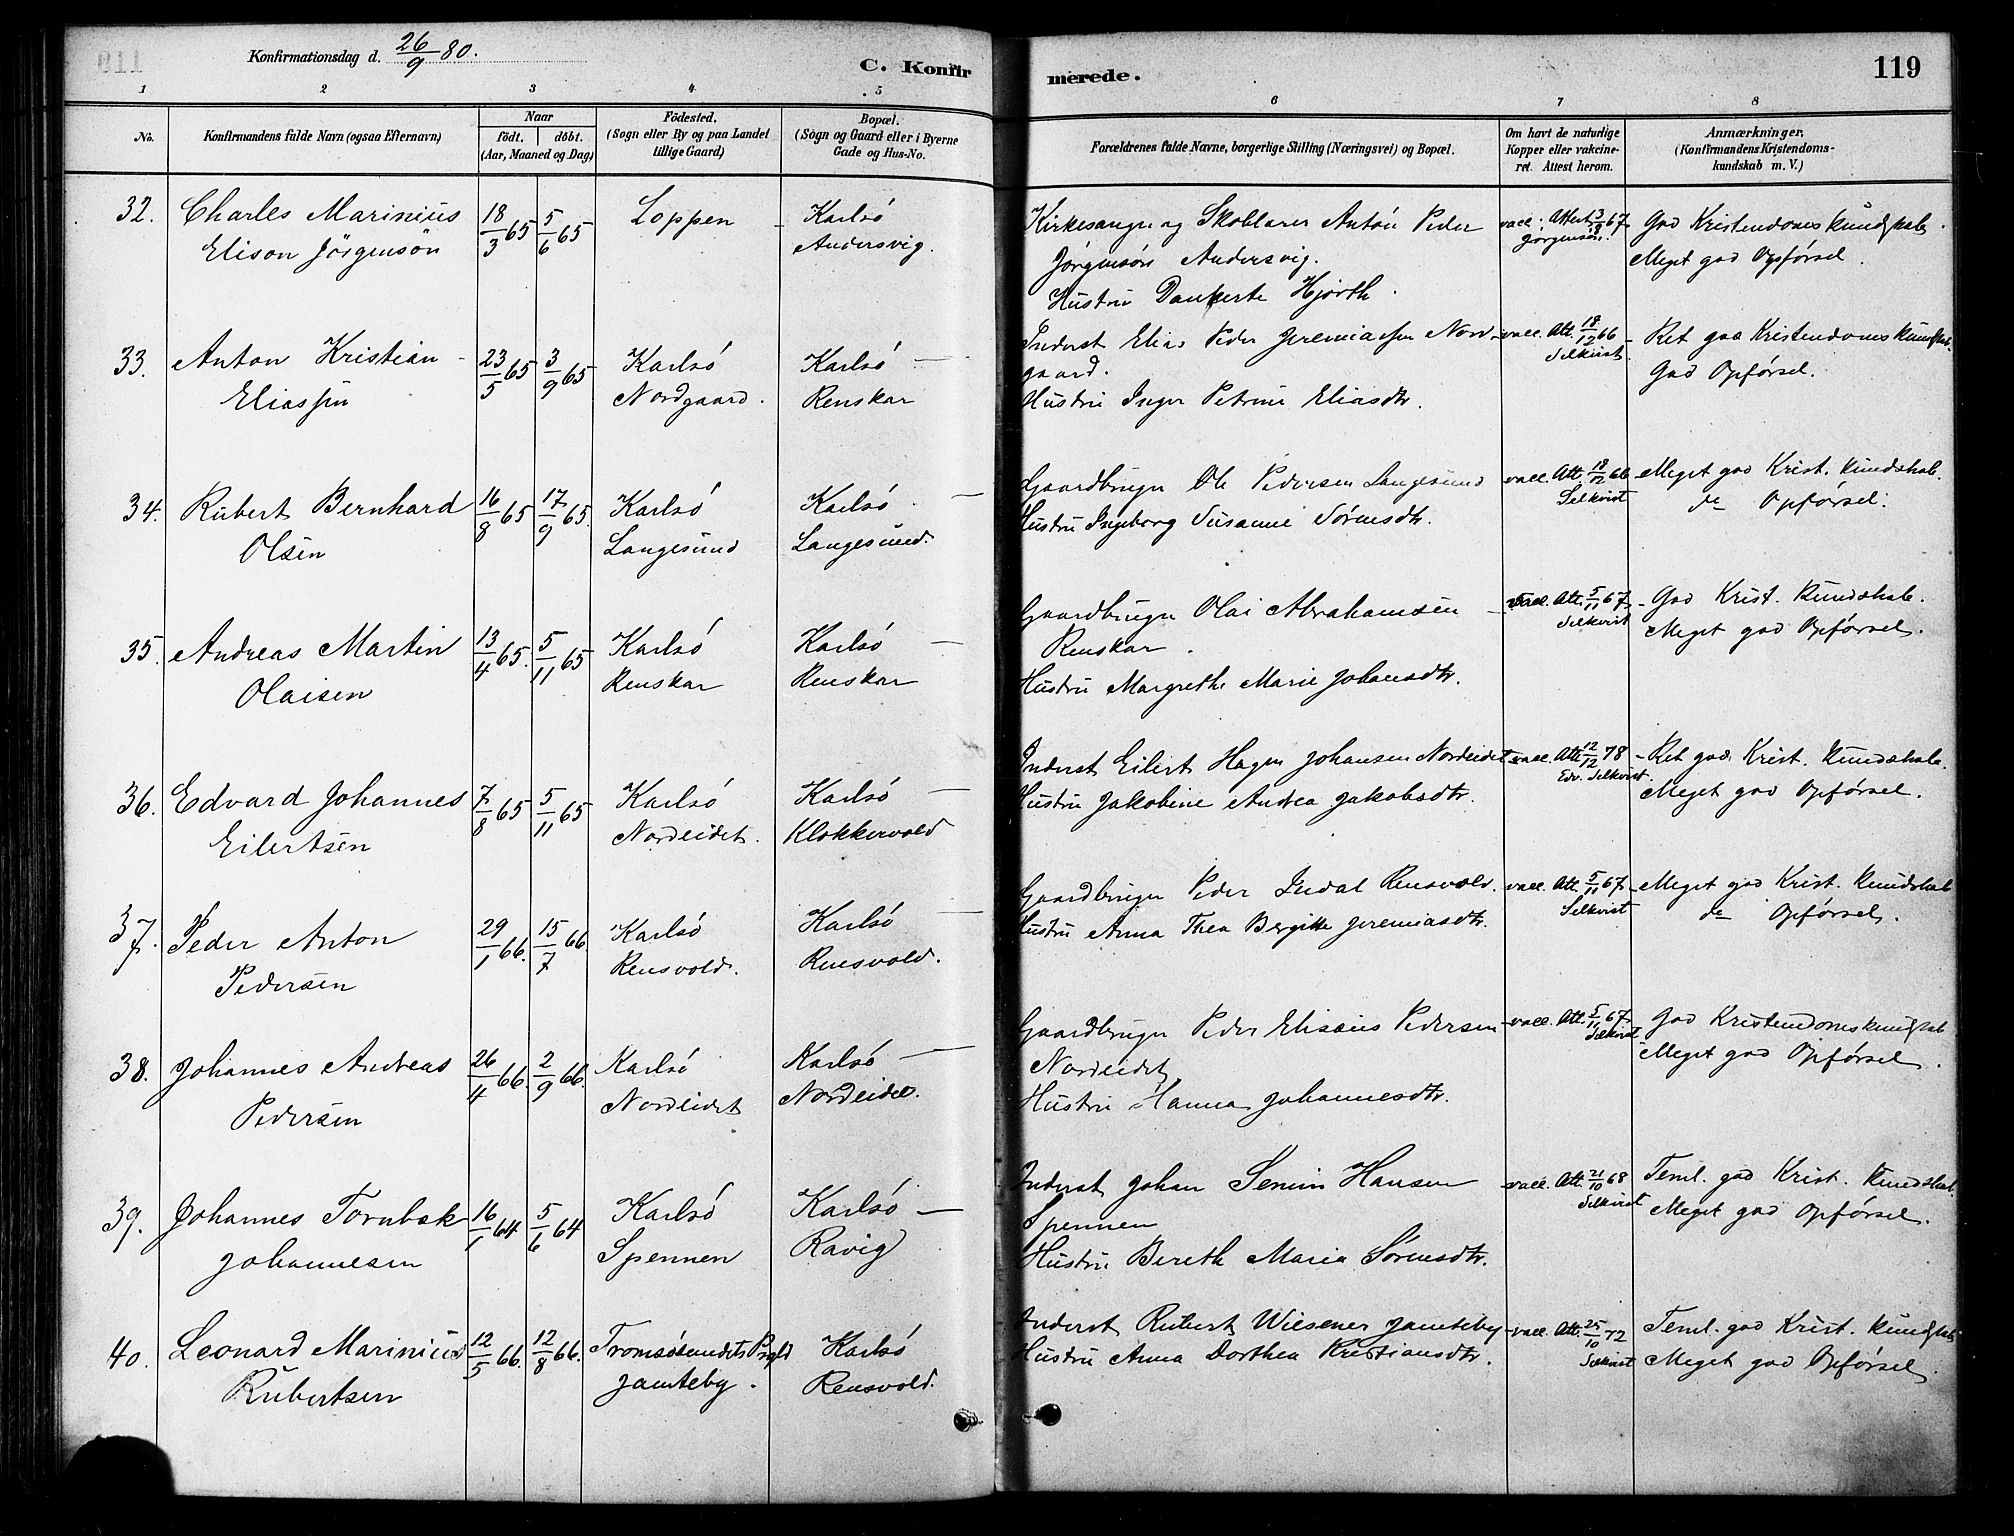 Konfirmationsdag d. 26/9 80.
C. Konfirmerede.
119
1 2 3 4 5 6 7 8
No.
Konfirmandens fulde Navn (ogsaa Efternavn)
Naar
født. döbt.
(Aar, Maaned og Dag)
Födested.
(Sogn eller By og paa Landet
tillige Gaard)
Bopæl.
(Sogn og Gaard eller i Byerne
Gade og Hus-No.
Forældrenes fulde Navne, borgerlige Stilling (Næringsvei) og Bopæl.
Om havt de naturlige
Kopper eller vakcine-
ret. Attest herom.
Anmærkninger.
(Konfirmandens Kristendoms-
kundskab m. V.)
32. Charles Marinius 18/3 65 5/6 65 Loppen Karlsö Kirkesanger og Skolelærer Anton Peder vacc. Attest 3/8 67 God Kristendomskundskab.
Elison Jörgensön Andersvig. Jörgensön Andersvig. Jörgensön. Meget god Opförsel.
Hustru Dankerte Hjorth.
33. Anton Kristian 23/5 65 3/9 65 Karlsö Karlsö Inderst Elias Peder Jeremiassen Nord- vacc. Att. 18/12 66 Ret god Kristendomskundskab.
Eliassen Nordgaard. Renskar gaard. Selkvist God Opförsel.
Hustru Inger Petrine Eliasdtr.
34. Rubert Bernhard 16/8 65 17/9 65. Karlsö Karlsö Gaardbruger Ole Pedersen Langesund vacc. Att. 18/12 66 Meget god Krist. kundskab.
Olsen Langesund Langesund. Hustru Ingeborg Susanne Sörensdtr. Selkvist do Opförsel.
35. Andreas Martin 13/4 65. 5/11 65 Karlsö Karlsö Gaardbruger Olai Abrahamsen vacc. Att. 5/11 67 God Krist. kundskab.
Olaisen Renskar Renskar Renskar. Selkvist Meget god Opförsel.
Hustru Margrethe Marie Johansdtr.
36. Edvard Johannes 7/8 65 5/11 65 Karlsö Karlsö Inderst Eilert Hagen Johansen Nordeidet vacc. Att. 12/12 78 Ret god Krist. kundskab.
Eilertsen Nordeidet. Klokkervold Hustru Jakobine Andrea Jakobsdtr. Edv. Selkvist. Meget god Opförsel.
37. Peder Anton 29/1 66. 15/7 66 Karlsö Karlsö Gaardbruger Peder Indal Rensvold. vacc. Att. 5/11 67 Meget god Krist. kundskab
Pedersen Rensvold. Rensvold. Hustru Anna Thea Bergitte Jeremiasdtr. Selkvist do Opförsel.
38. Johannes Andreas 26/4 66. 2/9 66. Karlsö Karlsö Gaardbruger Peder Elisæus Pedersen vacc. Att. 5/11 67 God Kristendomskundskab
Pedersen Nordeidet Nordeidet. Nordeidet Selkvist Meget god Opförsel.
Hustru Hanna Johannesdtr.
39. Johannes Tornbæk 16/1 64 5/6 64 Karlsö Karlsö Inderst Johan Hansen vacc. Att. 21/10 68 Teml. god Krist. kundskab.
Johannesen Spennen Ravig Spennen Selkvist Meget god Opförsel.
Hustru Bereth Maria Sörensdtr.
40. Leonard Marinius 12/5 66. 12/8 66. Tromsösundets Prgld Karlsö Inderst Rubert Wiesener Jamteby vacc. Att. 25/10 72 Teml. god Krist. kundskab
Rubertsen Jamteby. Rensvold. Hustru Anna Dorthea Kristiansdtr. Selkvist Meget god Opförsel.